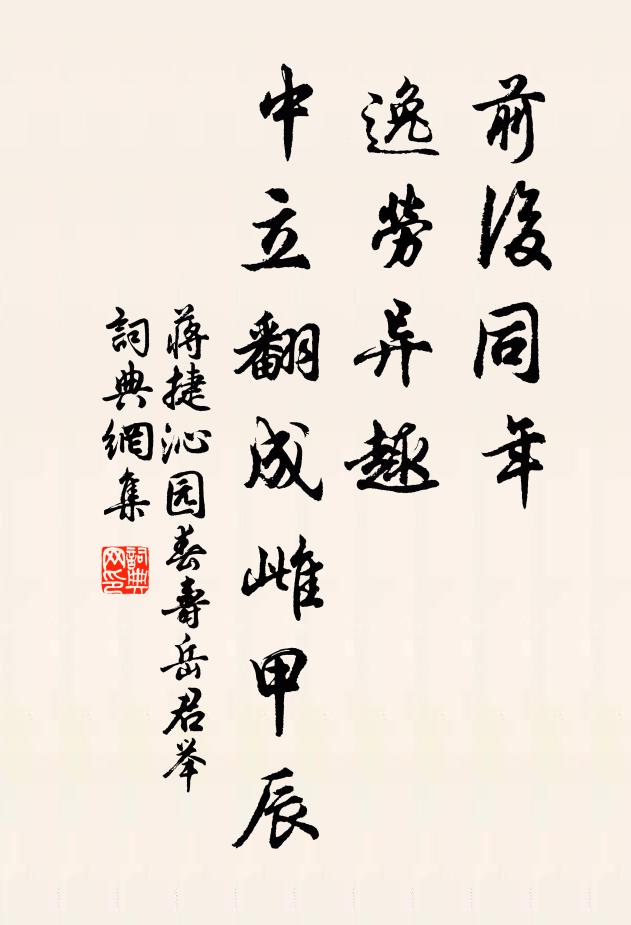 前後同年
逸勞异趣
中立翻成雌甲辰
蒋捷沁园春壽岳君举
詞典網集
詞典网印